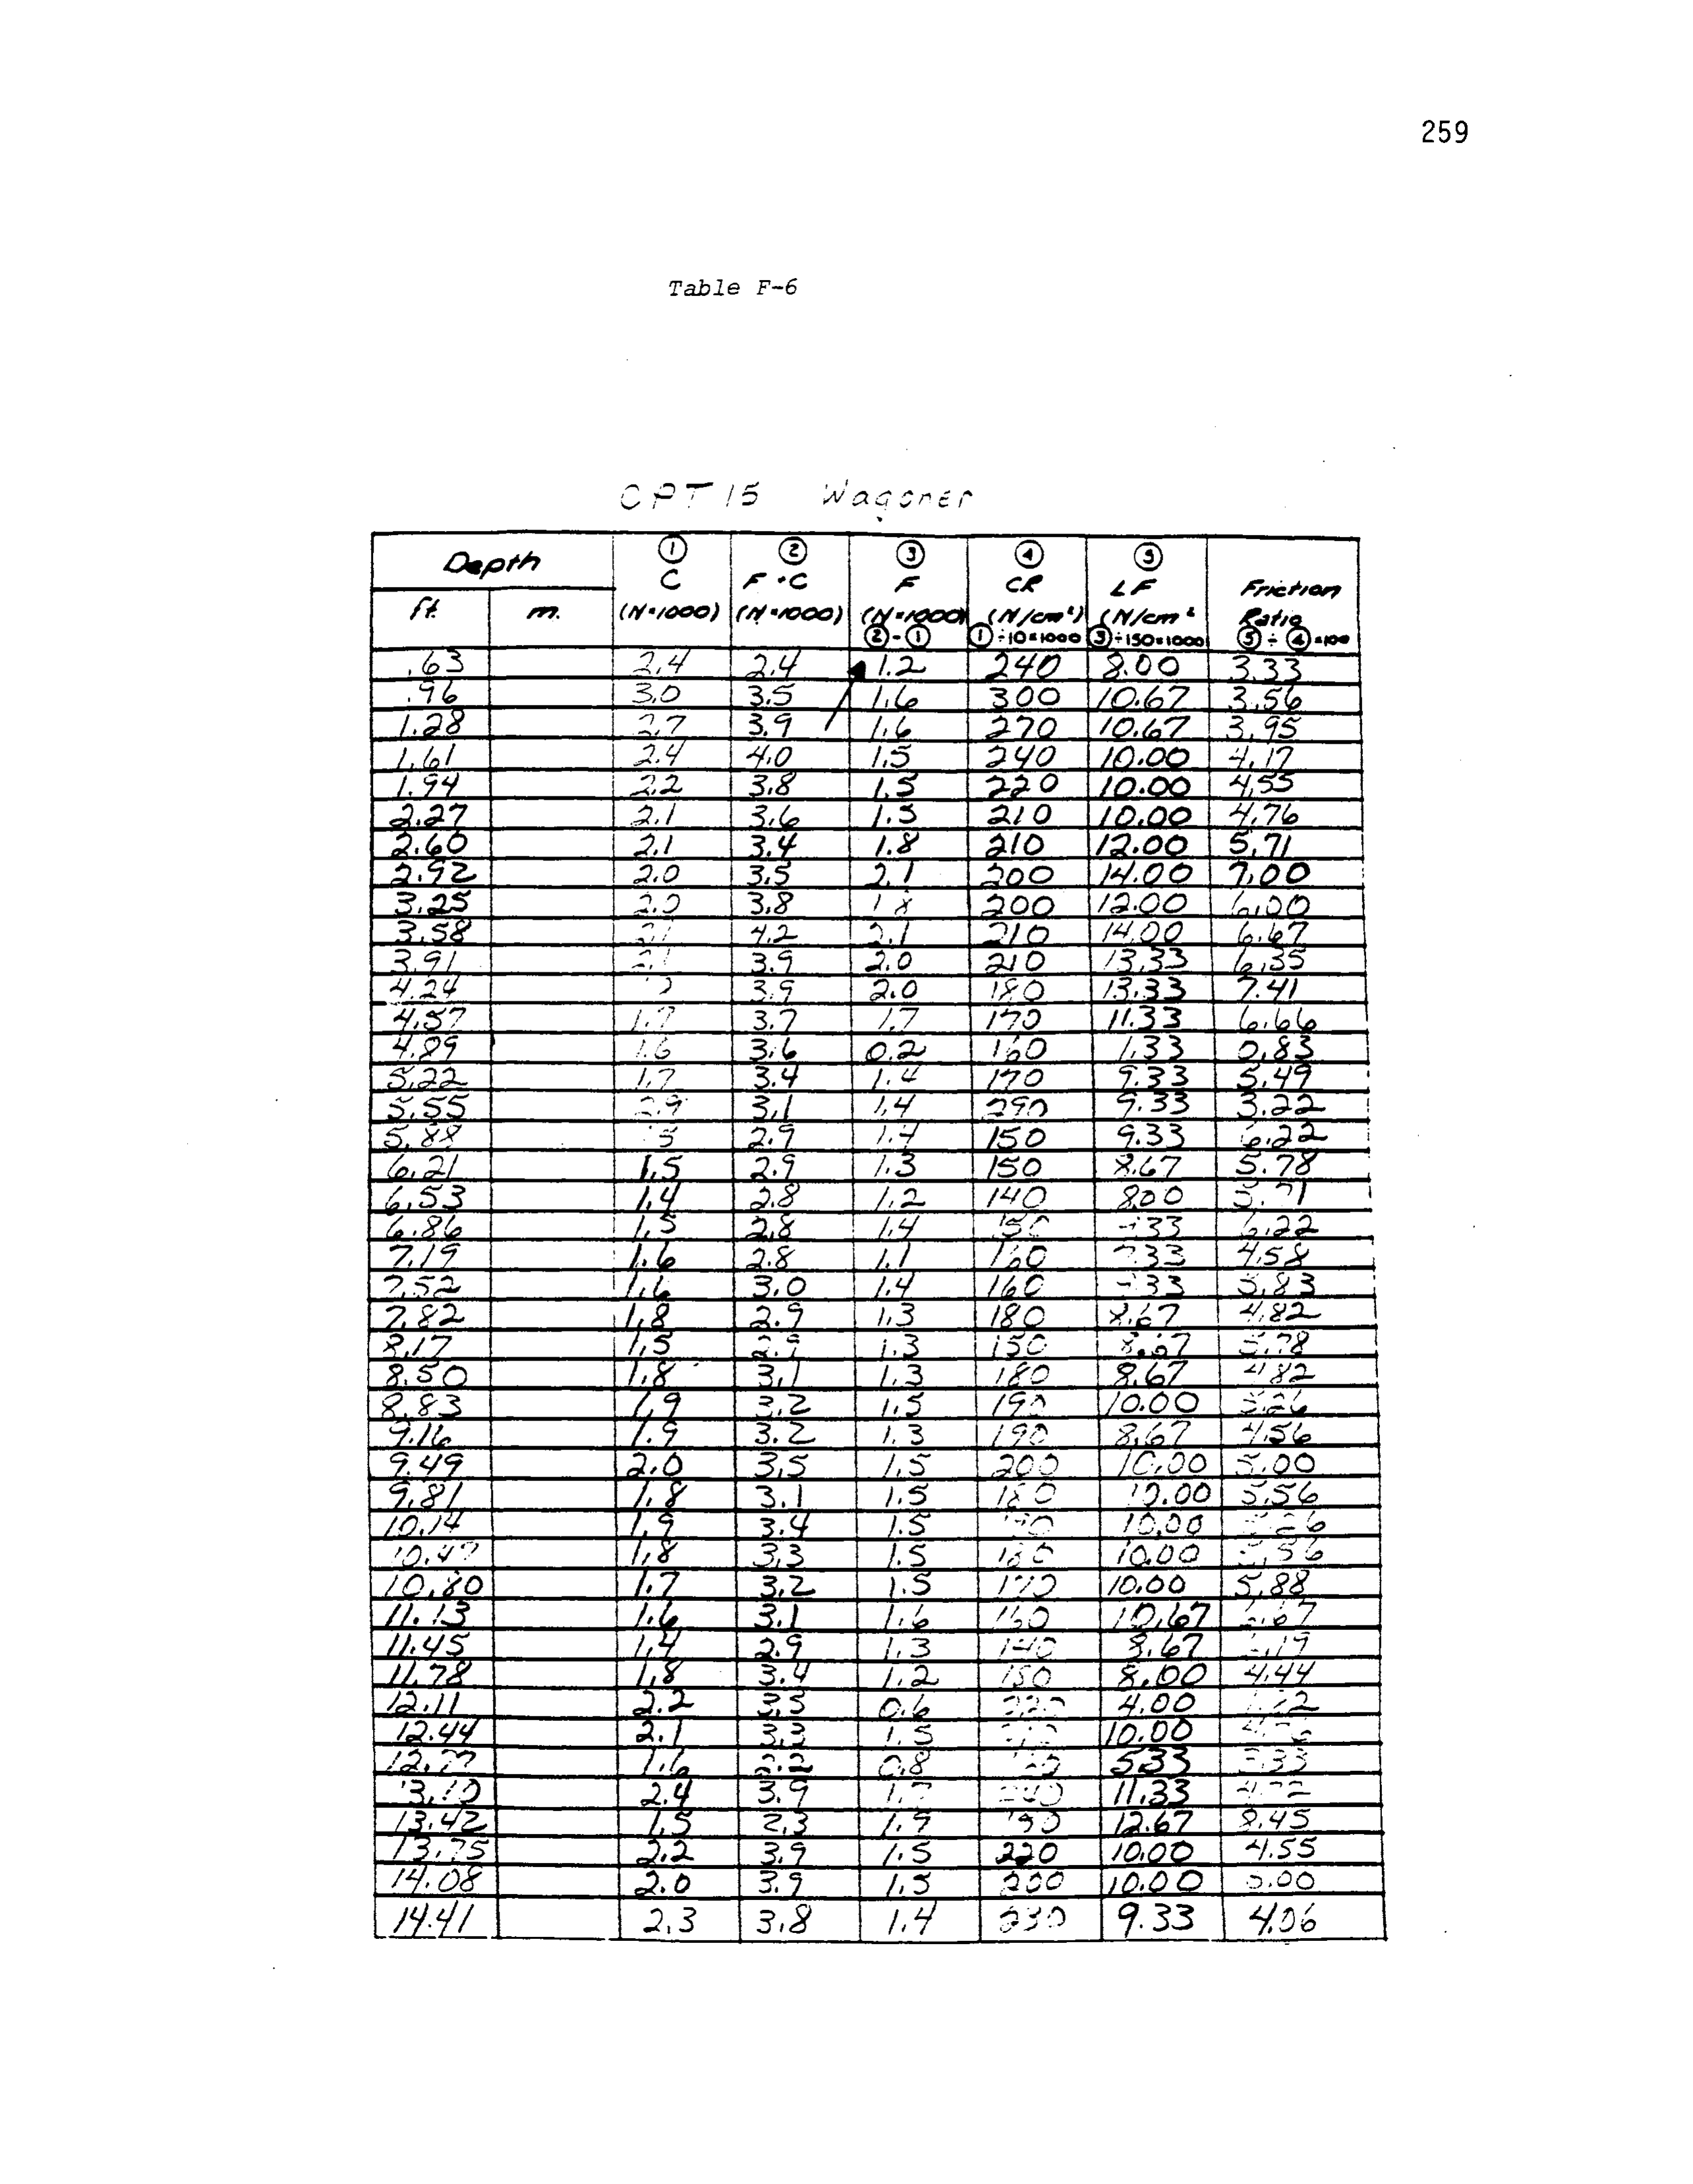 259
Table F-6
CPT 15 Wagoner
Depth ① ② ③ ④ ⑤
C F+C F CR LF Friction
ft. m. (N×1000) (N×1000) (N×1000) (N/cm²) (N/cm² Ratio
②-① ①÷10×1000 ③÷150×1000 ⑤÷④×100
.63 2.4 2.4 1.2 240 8.00 3.33
.96 3.0 3.5 1.6 300 10.67 3.56
1.28 2.7 3.9 1.6 270 10.67 3.95
1.61 2.4 4.0 1.5 240 10.00 4.17
1.94 2.2 3.8 1.5 220 10.00 4.55
2.27 2.1 3.6 1.5 210 10.00 4.76
2.60 2.1 3.4 1.8 210 12.00 5.71
2.92 2.0 3.5 2.1 200 14.00 7.00
3.25 2.0 3.8 1.8 200 12.00 6.00
3.58 2.1 4.2 2.1 210 14.00 6.67
3.91 2.1 3.9 2.0 210 13.33 6.35
4.24 3.9 2.0 180 13.33 7.41
4.57 1.7 3.7 1.7 170 11.33 6.66
4.89 1.6 3.6 0.2 160 1.33 0.83
5.22 1.7 3.4 1.4 170 9.33 5.49
5.55 2.9 3.1 1.4 290 9.33 3.22
5.88 2.9 1.4 150 9.33 6.22
6.21 1.5 2.9 1.3 150 8.67 5.78
6.53 1.4 2.8 1.2 140 8.00 5.71
6.86 1.5 2.8 1.4 150 6.22
7.19 1.6 2.8 1.1 160 7.33 4.58
7.52 1.6 3.0 1.4 160 5.83
7.82 1.8 2.9 1.3 180 8.67 4.82
8.17 1.5 2.9 1.3 150 8.67 5.78
8.50 1.8 3.1 1.3 180 8.67 4.82
8.83 1.9 3.2 1.5 190 10.00 5.26
9.16 1.9 3.2 1.3 190 8.67 4.56
9.49 2.0 3.5 1.5 200 10.00 5.00
9.81 1.8 3.1 1.5 180 10.00 5.56
10.14 1.9 3.4 1.5 10.00
10.47 1.8 3.3 1.5 180 10.00 5.56
10.80 1.7 3.2 1.5 170 10.00 5.88
11.13 1.6 3.1 1.6 160 10.67 6.67
11.45 1.4 2.9 1.3 140 8.67 6.19
11.78 1.8 3.4 1.2 180 8.00 4.44
12.11 2.2 3.5 0.6 220 4.00
12.44 2.1 3.3 1.5 10.00
12.77 1.6 2.2 0.8 5.33 3.33
13.10 2.4 3.9 1.7 240 11.33 4.72
13.42 1.5 2.3 1.9 12.67 8.45
13.75 2.2 3.9 1.5 220 10.00 4.55
14.08 2.0 3.9 1.5 200 10.00 5.00
14.41 2.3 3.8 1.4 230 9.33 4.06